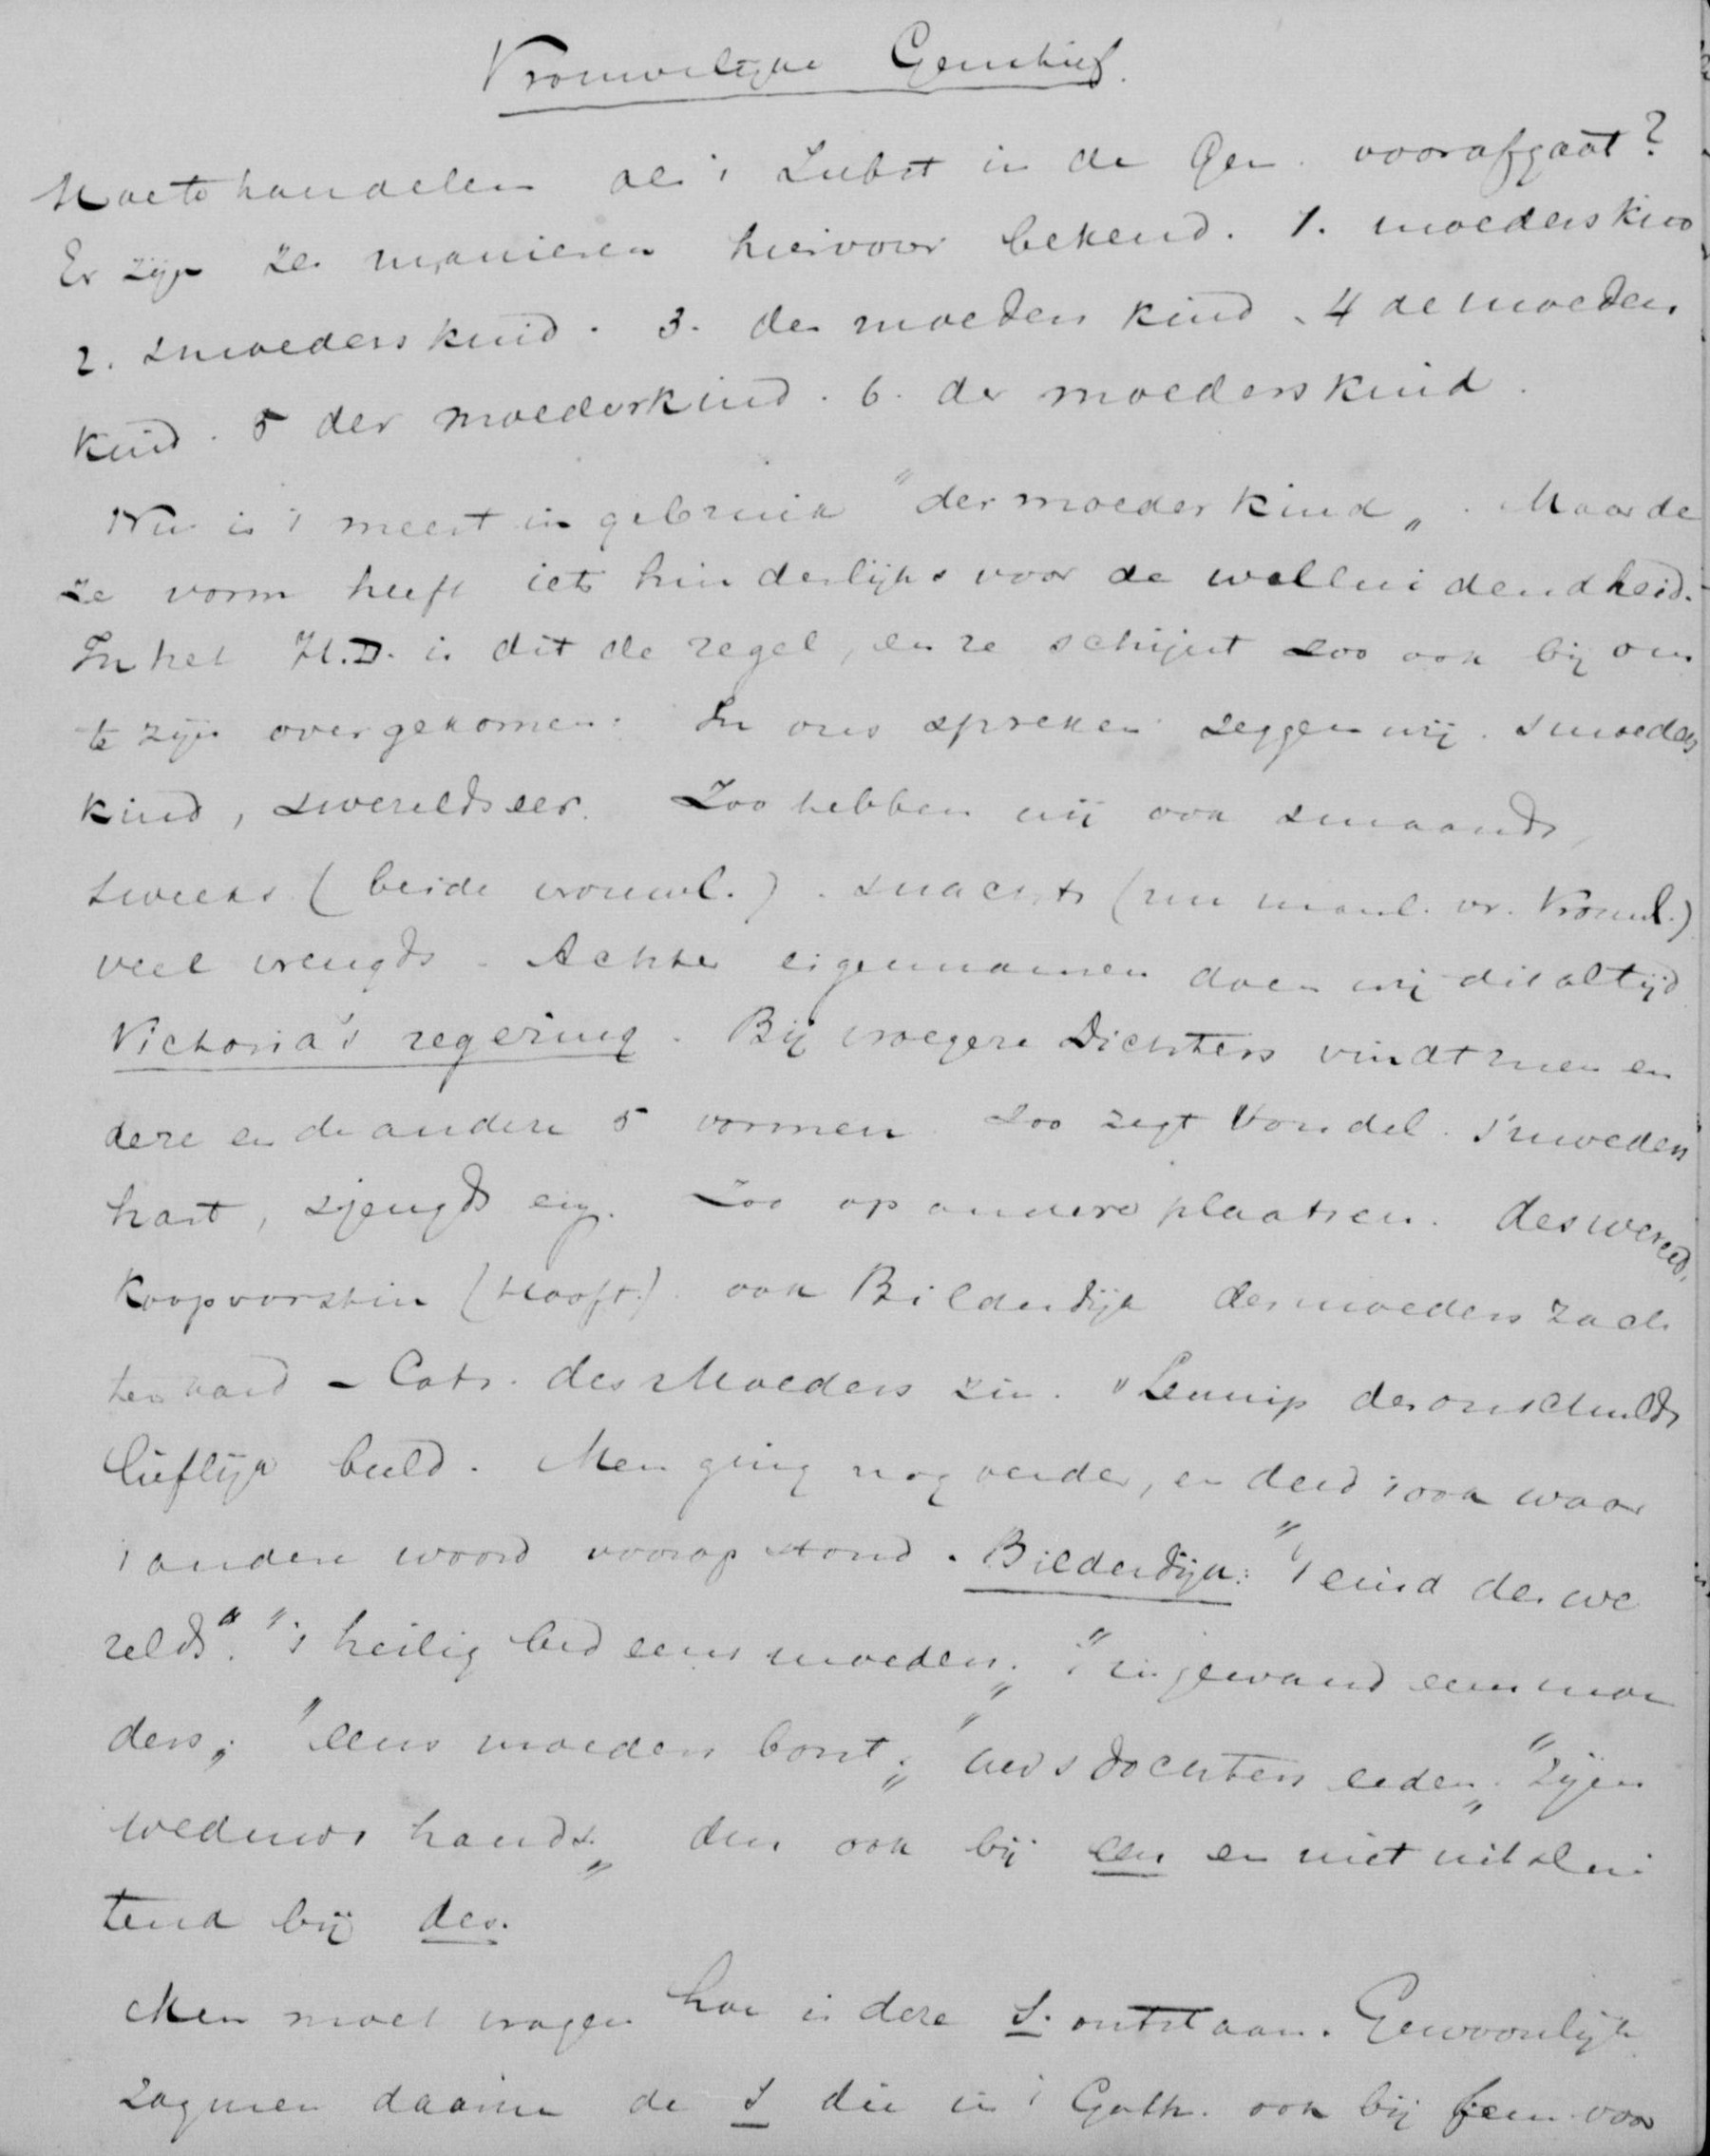 Vrouwelijke Genitief.
Hoe te handelen als 't Subst in de Gen. voorafgaat?
Er zijn zes manieren hiervoor bekend. 1. moeders kind
2. smoeders kind. 3. des moeders kind. 4 de moeders
kind. 5 der moederkind. 6. der moeders kind.
Nu is 't meest in gebruik "der moeder kind„. Maar de
ze vorm heeft iets hinderlijks voor de welluidendheid.
In het H.D. is dit de regel, en ze schijnt zoo ook bij ons
te zijn overgekomen. In ons spreken zeggen wij. smoeders
kind, swerelds eer. Zoo hebben wij ook smaands,
sweeks (beide vrouwl.). snachts (nu manl. vr. Vrouwl.)
veel vreugds. Achter eigennamen doen wij dit altijd
Victoria's regering. Bij vroegere Dichters vindt men en
deze en de andere 5 vormen. Zoo zegt Vondel. s'moeders
hart, sjeugds eig. Zoo op andere plaatsen. des wereld.
koopvorstin (Hooft.) ook Bilderdijk des moeders zach
ter hand – Cats. des Moeders zin. v Lennip des onschulds
lieflijk beeld. Men ging nog verder, en deed 't ook waar
't andere woord voorop stond. Bilderdijk: "'t eind des we
relds". "'t heilig bed eens moeders„. "'t ingewand eens moe
ders„ "eens moeders borst„ "uws dochters eeden„. "Zijns
weduws hands„ dus ook bij een en niet uitslui
tend bij des.
Men moet vragen hoe is deze S. ontstaan. Gewoonlijk
zag men daarin de S die in 't Goth. ook bij fem. voor